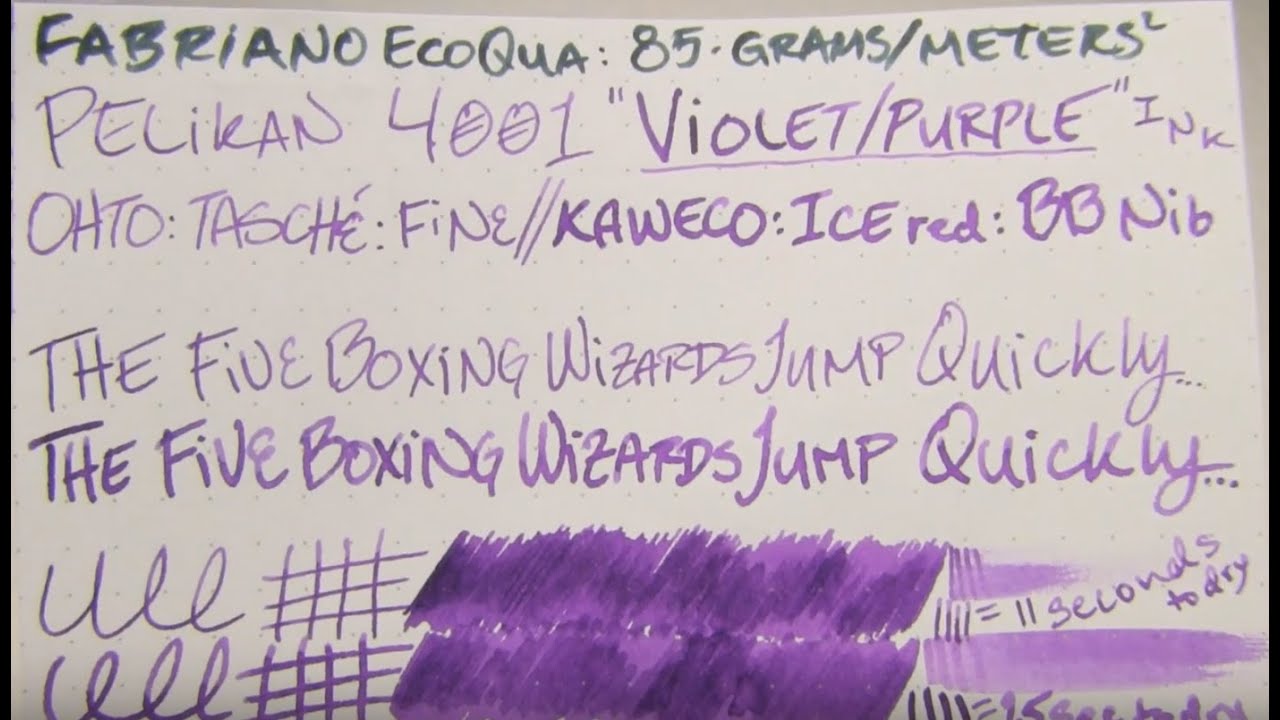 FABRIANO ECOQUA: 85·GRAMS/METERS²
PELIKAN 4001 "VIOLET/PURPLE" INK
OHTO: TASCHÉ: FINE//KAWECO: ICE red: BB Nib
THE FIVE BOXING WIZARDS JUMP QUICKLY...
THE FIVE BOXING WIZARDS JUMP QUICKLY...
= 11 seconds
to dry
sec to dry